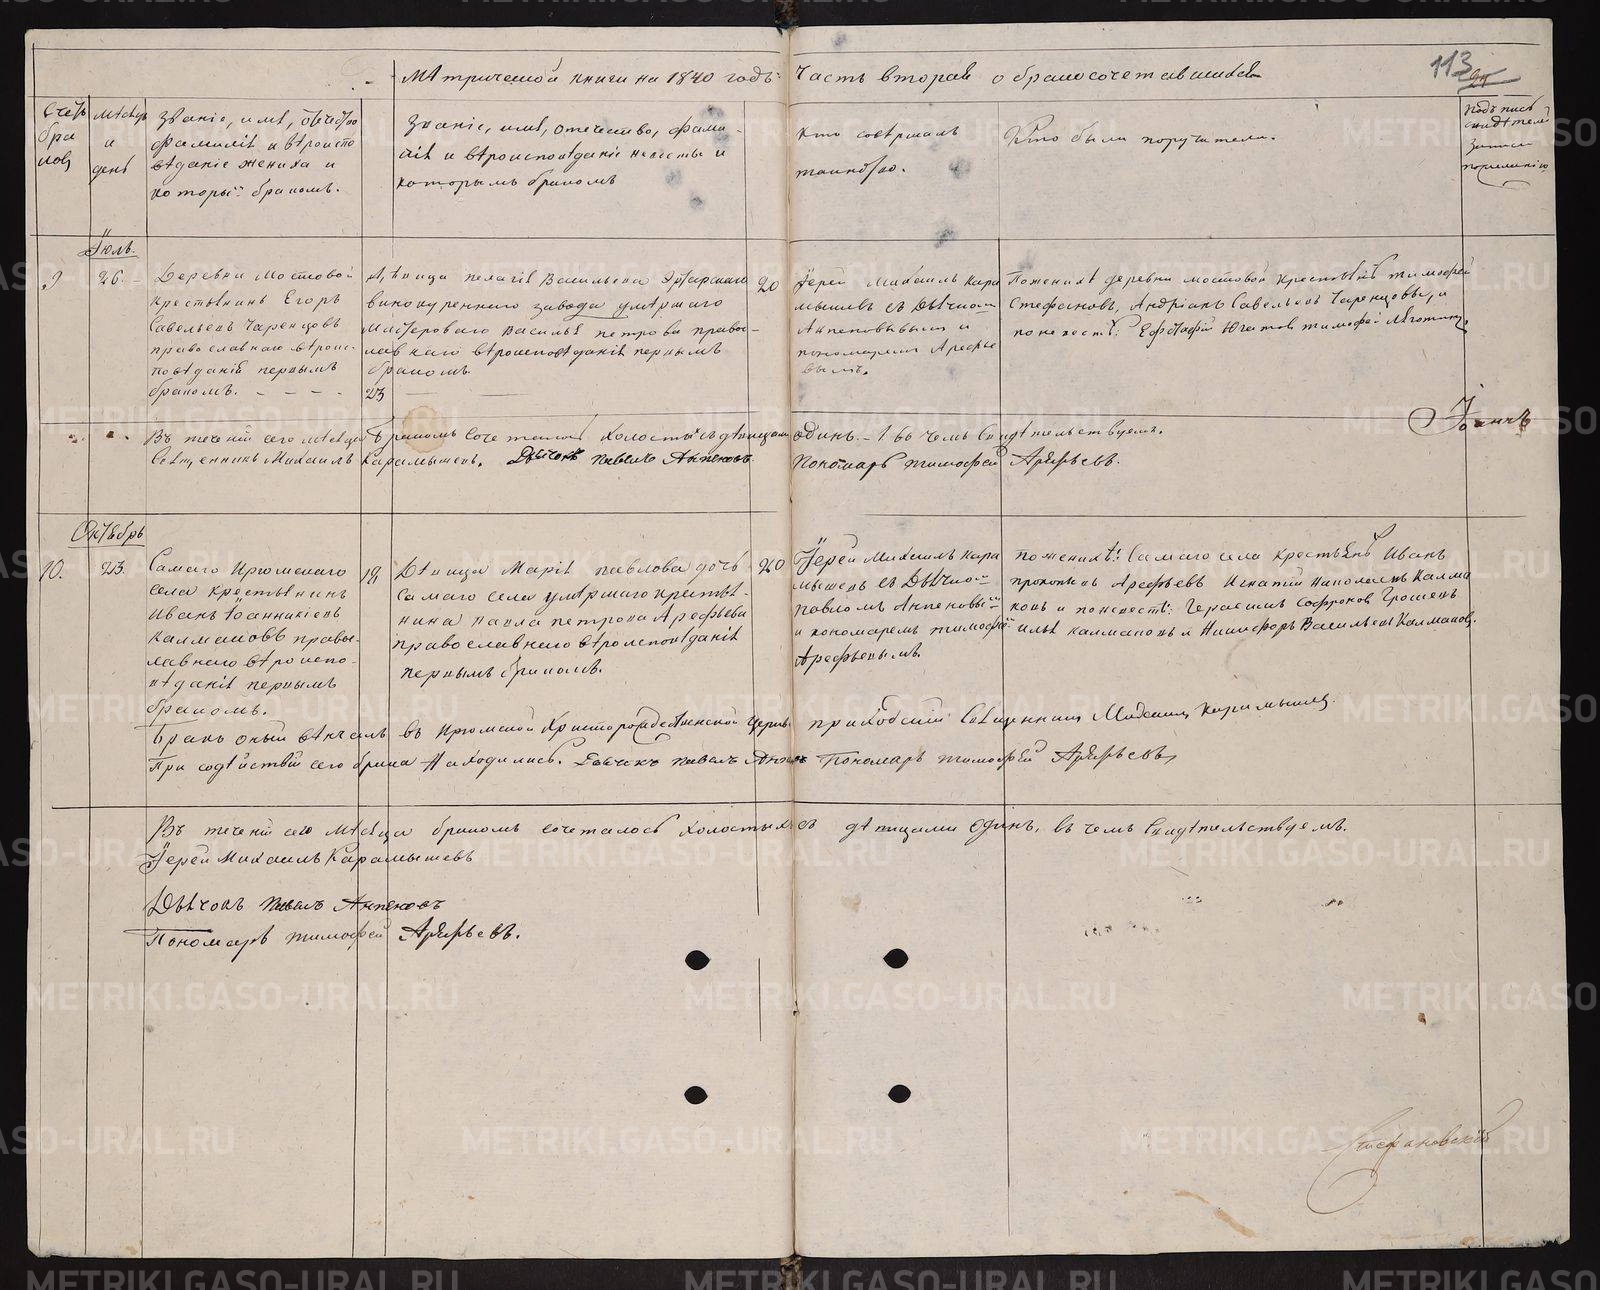 Метрической книги на 1840 годъ.
Часть вторая о бракосочетавшихся
113
Счетъ браковъ
Месяцъ и день
Званіе, имя, отечество
фамилія и вѣроиспо
вѣданіе жениха и
который бракомъ.
Званіе, имя, отечество, фами-
лія и вѣроисповѣданіе невесты и
которымъ бракомъ
Кто совершалъ
таинство.
Кто были поручители.
Подъпись
свидѣтелей
записи
по желанію
Іюль.
9
26.
Деревни Мостовой
крестьянинъ Егоръ
Савельевъ Чаренцовъ
православнаго вѣроис-
повѣданія первымъ
бракомъ.
23
Дѣвица Пелагія Васильева
винокуреннаго завода умѣршаго
мастероваго Василья Петрова право-
славнаго вѣроисповѣданія первымъ
бракомъ.
20
Іерей Михаилъ Кара
мышевъ съ Дьячкомъ
Анпеновывымъ и
пономаремъ Арефье
вымъ.
По женихѣ деревни Мостовой крестьянѣ Тимофей
Стефановъ, Андріанъ Савельевъ Чаренцовы, и
по невестѣ: Тимофей
Въ теченіи сего месяца бракомъ сочетался холостый съ дѣвицами одинъ.- 1. въ чемъ свидѣтельствуемъ.
Священникъ Михаилъ Карамышевъ. Дьячокъ Павелъ Анпеновъ. Пономарь Тимофей Арефьевъ.
Октябрь
10.
23.
Самаго Ирюмскаго
села крестьянинъ
Иванъ Іоанникіевъ
Калмаковъ право-
славнаго вѣроиспо-
вѣданія первымъ
бракомъ.
19
Дѣвица Марія Павлова дочь
самаго села умѣршаго кресть-
нина Павла Петрова Арефьева
православнаго вѣроисповѣданія
первымъ бракомъ.
20
Іерей Михаилъ Кара
мышевъ съ Дьячкомъ
Павломъ Анпеновымъ
и пономаремъ Тимофей
Арефьевымъ.
по женихѣ: самаго села крестьянѣ Иванъ
Прокопьевъ Арефьевъ Игнатій Николаевъ Калма
ковъ и по невестѣ: Герасимъ Софроновъ Грошевъ
илья Калмаковъ и Никифоръ Васильевъ Калмаковъ.
Бракъ оный вѣнчалъ въ Ирюмской Христорождественской церкви приходский священникъ Михаилъ Карамышевъ
При содѣйствіи сего брака Находились. Дьячекъ Павелъ Анпеновъ Пономарь Тимофей Арефьевъ
Въ теченіи сего месяца бракомъ сочеталось холостыхъ съ дѣвицами одинъ. въ чемъ свидѣтельствуемъ.
Іерей Михаилъ Карамышевъ
Дьячокъ Павелъ Анпеновъ
Пономарь Тимофей Арефьевъ.
Стефановскій
METRIKI.GASO-URAL.RU